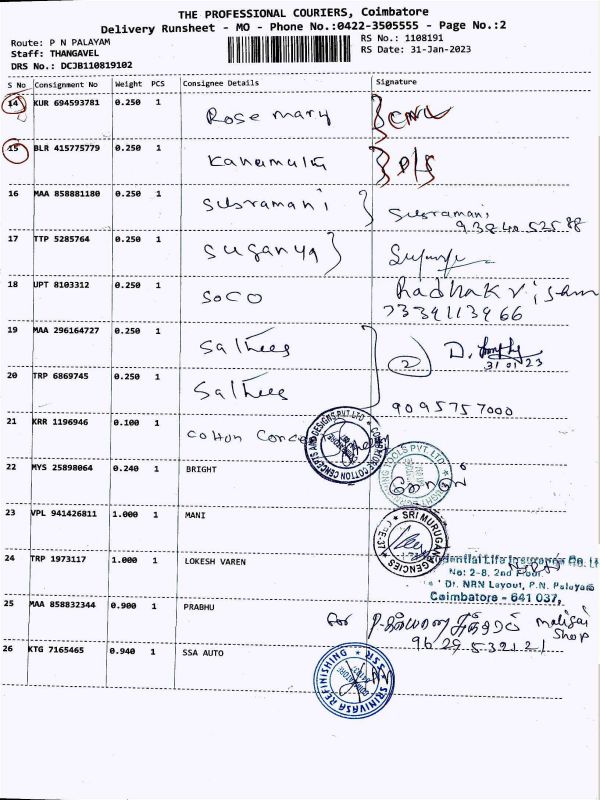 THE PROFESSIONAL COURIERS, Coimbatore
Delivery Runsheet - MO - Phone No.:0422-3505555 - Page No.:2
Route: P N PALAYAM
Staff: THANGAVEL
DRS No.: DCJB110819102
RS No.: 1108191
RS Date: 31-Jan-2023
S No Consignment No Weight PCS Consignee Details Signature
14 KUR 694593781 0.250 1 Rose mary
15 BLR 415775779 0.250 1
16 MAA 858881180 0.250 1 Subramani Subramani
93840 52588
17 TTP 5285764 0.250 1 Suganya
18 UPT 8103312 0.250 1 SOCO
7339113966
19 MAA 296164727 0.250 1 Sathees 2 D.
31 01 23
20 TRP 6869745 0.250 1 Sathees
9095757000
21 KRR 1196946 0.100 1 Cotton
COTTON CONCEPTS AND DESIGNS PVT LTD
22 MYS 25898064 0.240 1 BRIGHT
TOOLS PVT. LTD
23 VPL 941426811 1.000 1 MANI
SRI MURUGAN AGENCIES
24 TRP 1973117 1.000 1 LOKESH VAREN
Life Insurance Co. Lt
No: 2-8, 2nd Floor
Dr. NRN Layout, P.N. Palayam
Coimbatore - 641 037,
25 MAA 858832344 0.900 1 PRABHU
maligai
Shop
9629532121
26 KTG 7165465 0.940 1 SSA AUTO
SRINIVASA REFINISHING